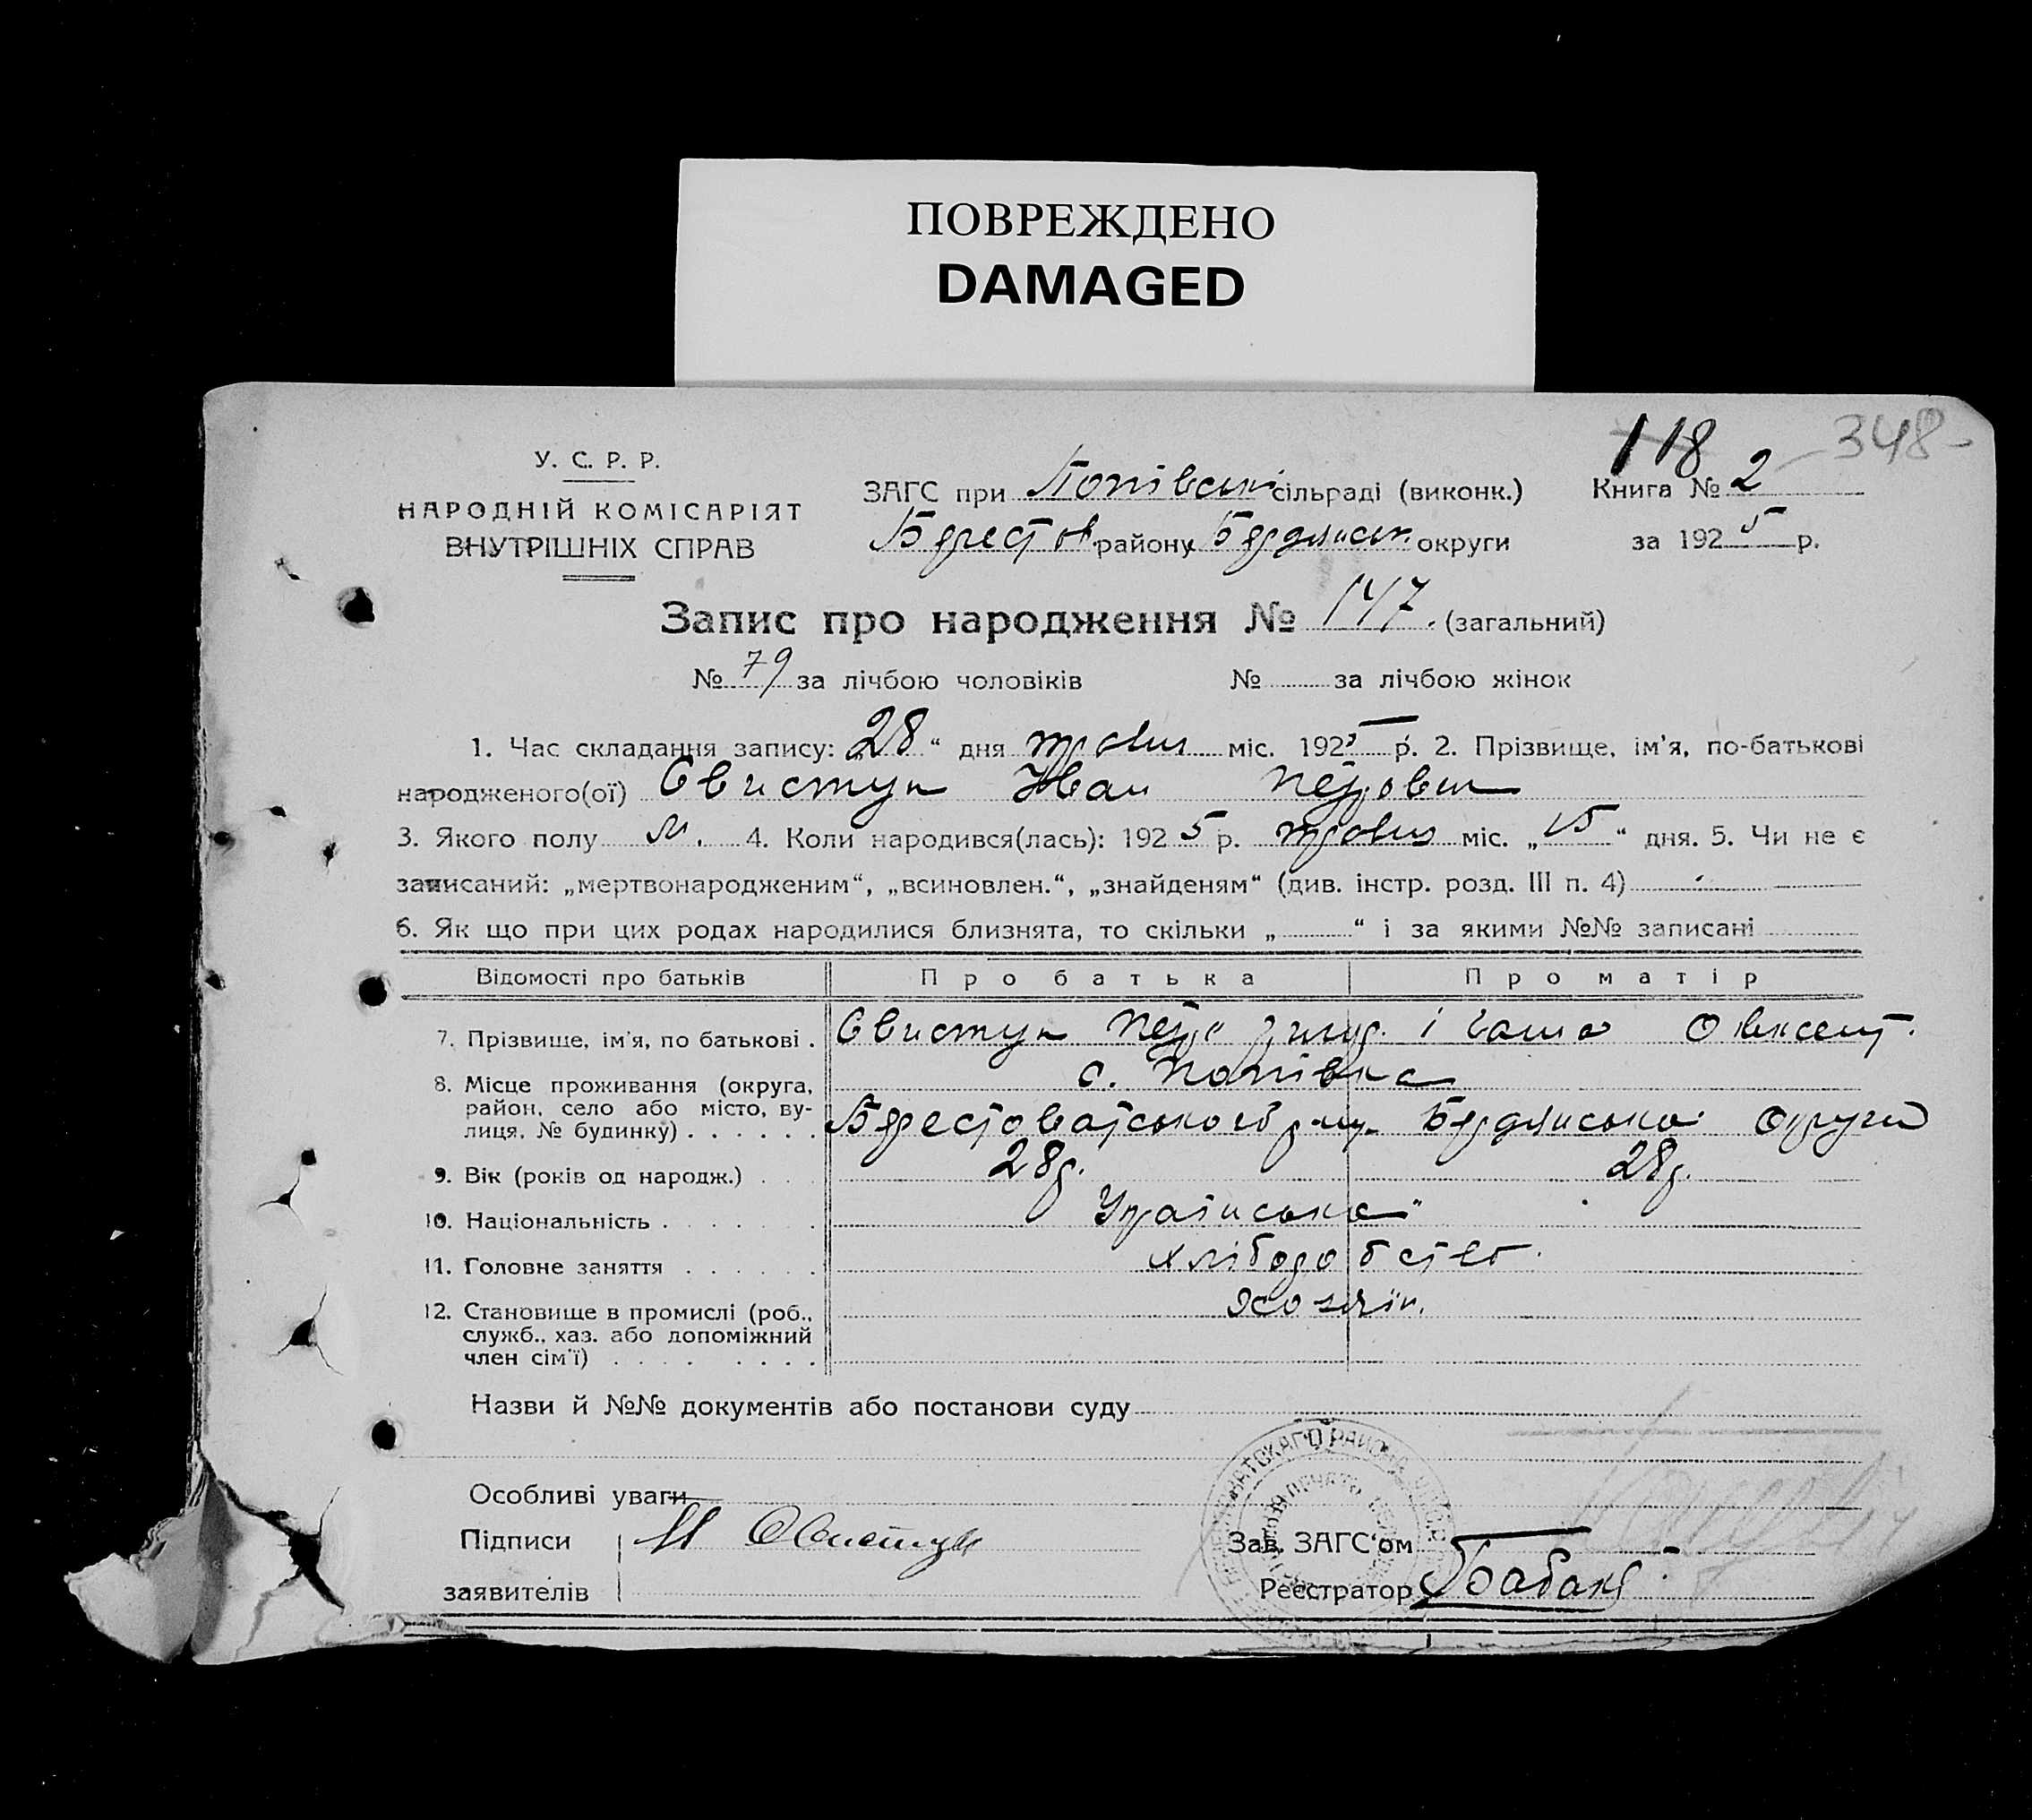 ПОВРЕЖДЕНО
DAMAGED
118 2 348-
У. С. Р. Р.
НАРОДНІЙ КОМІСАРІЯТ
ВНУТРІШНІХ СПРАВ
ЗАГС при Попівській сільраді (виконк.) Книга № 2
Берестов. району Бердянськ. округи за 1925 р.
Запис про народження № 147. (загальний)
№ 79 за лічбою чоловіків № за лічбою жінок
1. Час складання запису: 28 “ дня травня міс. 1925 р. 2. Прізвище, ім'я, по-батькові
народженого(ої) Свистун Иван Петрович
3. Якого полу М. 4. Коли народився(лась): 1925 р. травня міс. „15“ дня. 5. Чи не є
записаний: „мертвонародженим“, „всиновлен.“, „знайденям“ (див. інстр. розд. III п. 4)
6. Як що при цих родах народилися близнята, то скільки „ “ і за якими №№ записані
Відомості про батьків Про батька Про матір
7. Прізвище, ім'я, по батькові . Свистун Петро і
8. Місце проживання (округа, район, село або місто, вулиця, № будинку) с. Попівка
Берестоватського Бердянської Округи
9. Вік (років од народж.) 28р. 28р.
10. Національність Українська
11. Головне заняття хліборобство.
12. Становище в промислі (роб., служб., хаз. або допоміжний член сім'ї) Хозяїн.
Назви й №№ документів або постанови суду
Особливі уваги
Підписи заявителів Свистун
Зав. ЗАГС'ом
Реєстратор